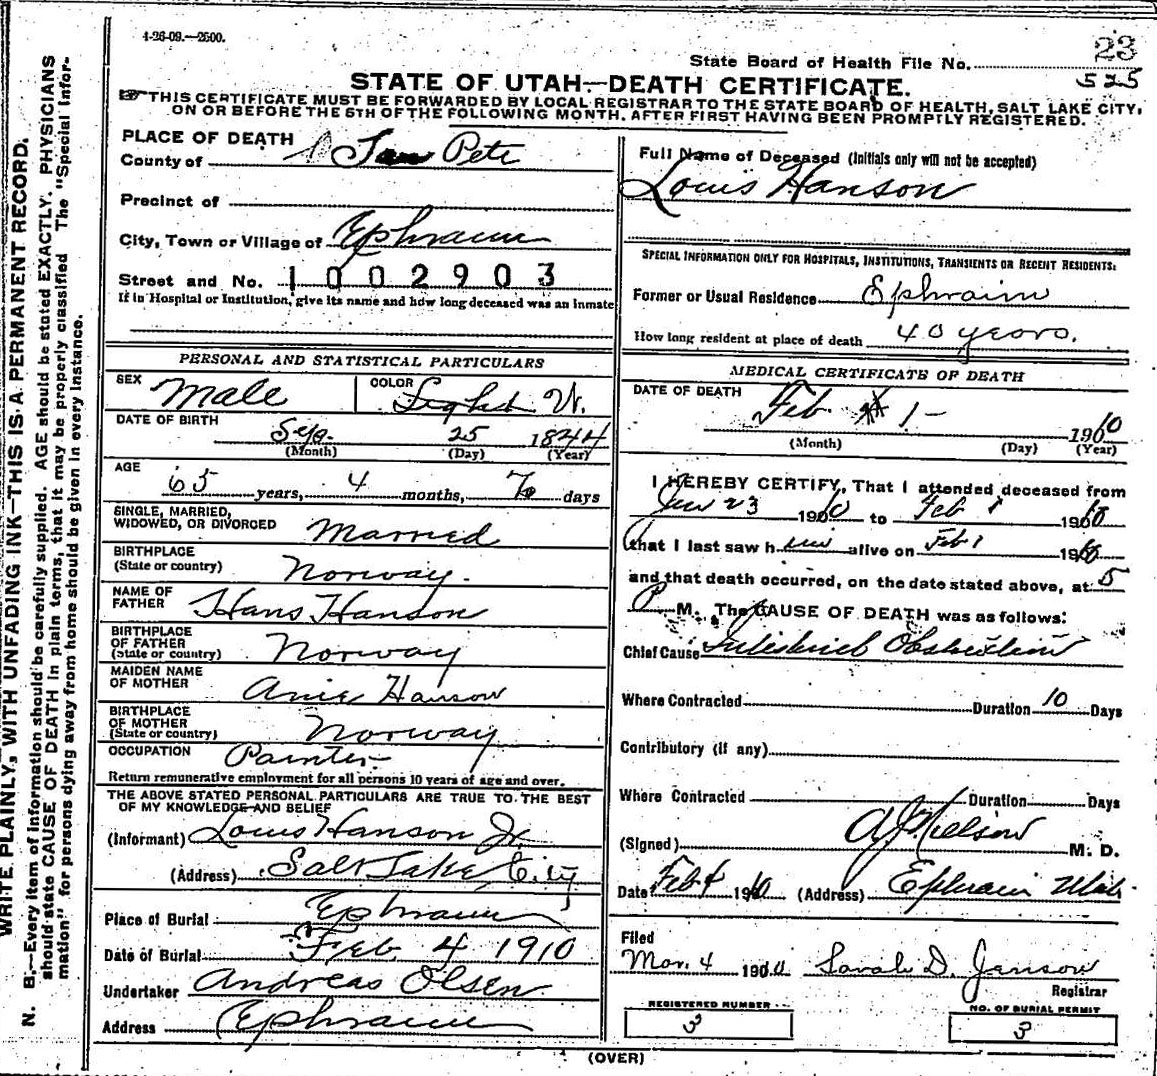 4-26-09.—2500.
State Board of Health File No. 23
525
STATE OF UTAH—DEATH CERTIFICATE.
THIS CERTIFICATE MUST BE FORWARDED BY LOCAL REGISTRAR TO THE STATE BOARD OF HEALTH, SALT LAKE CITY,
ON OR BEFORE THE 5TH OF THE FOLLOWING MONTH, AFTER FIRST HAVING BEEN PROMPTLY REGISTERED.
PLACE OF DEATH
County of San Pete
Precinct of
City, Town or Village of Ephraim
Street and No. 1002903
If in Hospital or Institution, give its name and how long deceased was an inmate
PERSONAL AND STATISTICAL PARTICULARS
SEX Male COLOR Light W.
DATE OF BIRTH
Sep. 25 1844
(Month) (Day) (Year)
AGE
65 years, 4 months, 7 days
SINGLE, MARRIED,
WIDOWED, OR DIVORCED Married
BIRTHPLACE
(State or country) Norway.
NAME OF
FATHER Hans Hanson
BIRTHPLACE
OF FATHER
(State or country) Norway
MAIDEN NAME
OF MOTHER Anie Hanson
BIRTHPLACE
OF MOTHER
(State or country) Norway
OCCUPATION Painter.
Return remunerative employment for all persons 10 years of age and over.
THE ABOVE STATED PERSONAL PARTICULARS ARE TRUE TO THE BEST
OF MY KNOWLEDGE AND BELIEF
(Informant) Louis Hanson Jr.
(Address) Salt Lake City
Place of Burial Ephraim
Date of Burial Feb 4 1910
Undertaker Andreas Olsen.
Address Ephraim
Full Name of Deceased (Initials only will not be accepted)
Louis Hanson
SPECIAL INFORMATION ONLY FOR HOSPITALS, INSTITUTIONS, TRANSIENTS OR RECENT RESIDENTS:
Former or Usual Residence Ephraim
How long resident at place of death 40 years.
MEDICAL CERTIFICATE OF DEATH
DATE OF DEATH
Feb 1 - 1910
(Month) (Day) (Year)
I HEREBY CERTIFY, That I attended deceased from
Jan 23 1910 to Feb 1 1910
that I last saw him alive on Feb 1 1910
and that death occurred, on the date stated above, at 5
P M. The CAUSE OF DEATH was as follows:
Chief Cause Obstruction
Where Contracted Duration 10 Days
Contributory (if any)
Where Contracted Duration Days
(Signed) A J Nielson M. D.
Date Feb 4 1910 (Address) Ephraim Utah
Filed
Mar. 4 1910 Sarah D. Jenson
Registrar
REGISTERED NUMBER
3
NO. OF BURIAL PERMIT
3
(OVER)
WRITE PLAINLY, WITH UNFADING INK—THIS IS A PERMANENT RECORD.
N. B.—Every item of information should be carefully supplied. AGE should be stated EXACTLY. PHYSICIANS
should state CAUSE OF DEATH in plain terms, that it may be properly classified The "Special Infor-
mation" for persons dying away from home should be given in every instance.